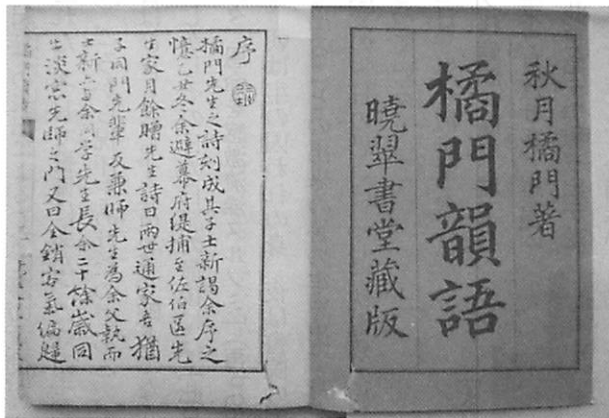 秋月橘門著
橘門韻語
曉翠書堂藏版
序
橘門先生之詩刻成其子士新謁余序之
憶乙丑冬余避幕府緹捕至佐伯匿先
生家月餘贈先生詩曰兩世通家吾猶
子同門先輩友兼師先生為余父執而
士新亦与余同学先生長余二十餘歲同
出淡窓先師之門又曰全銷客氣偏